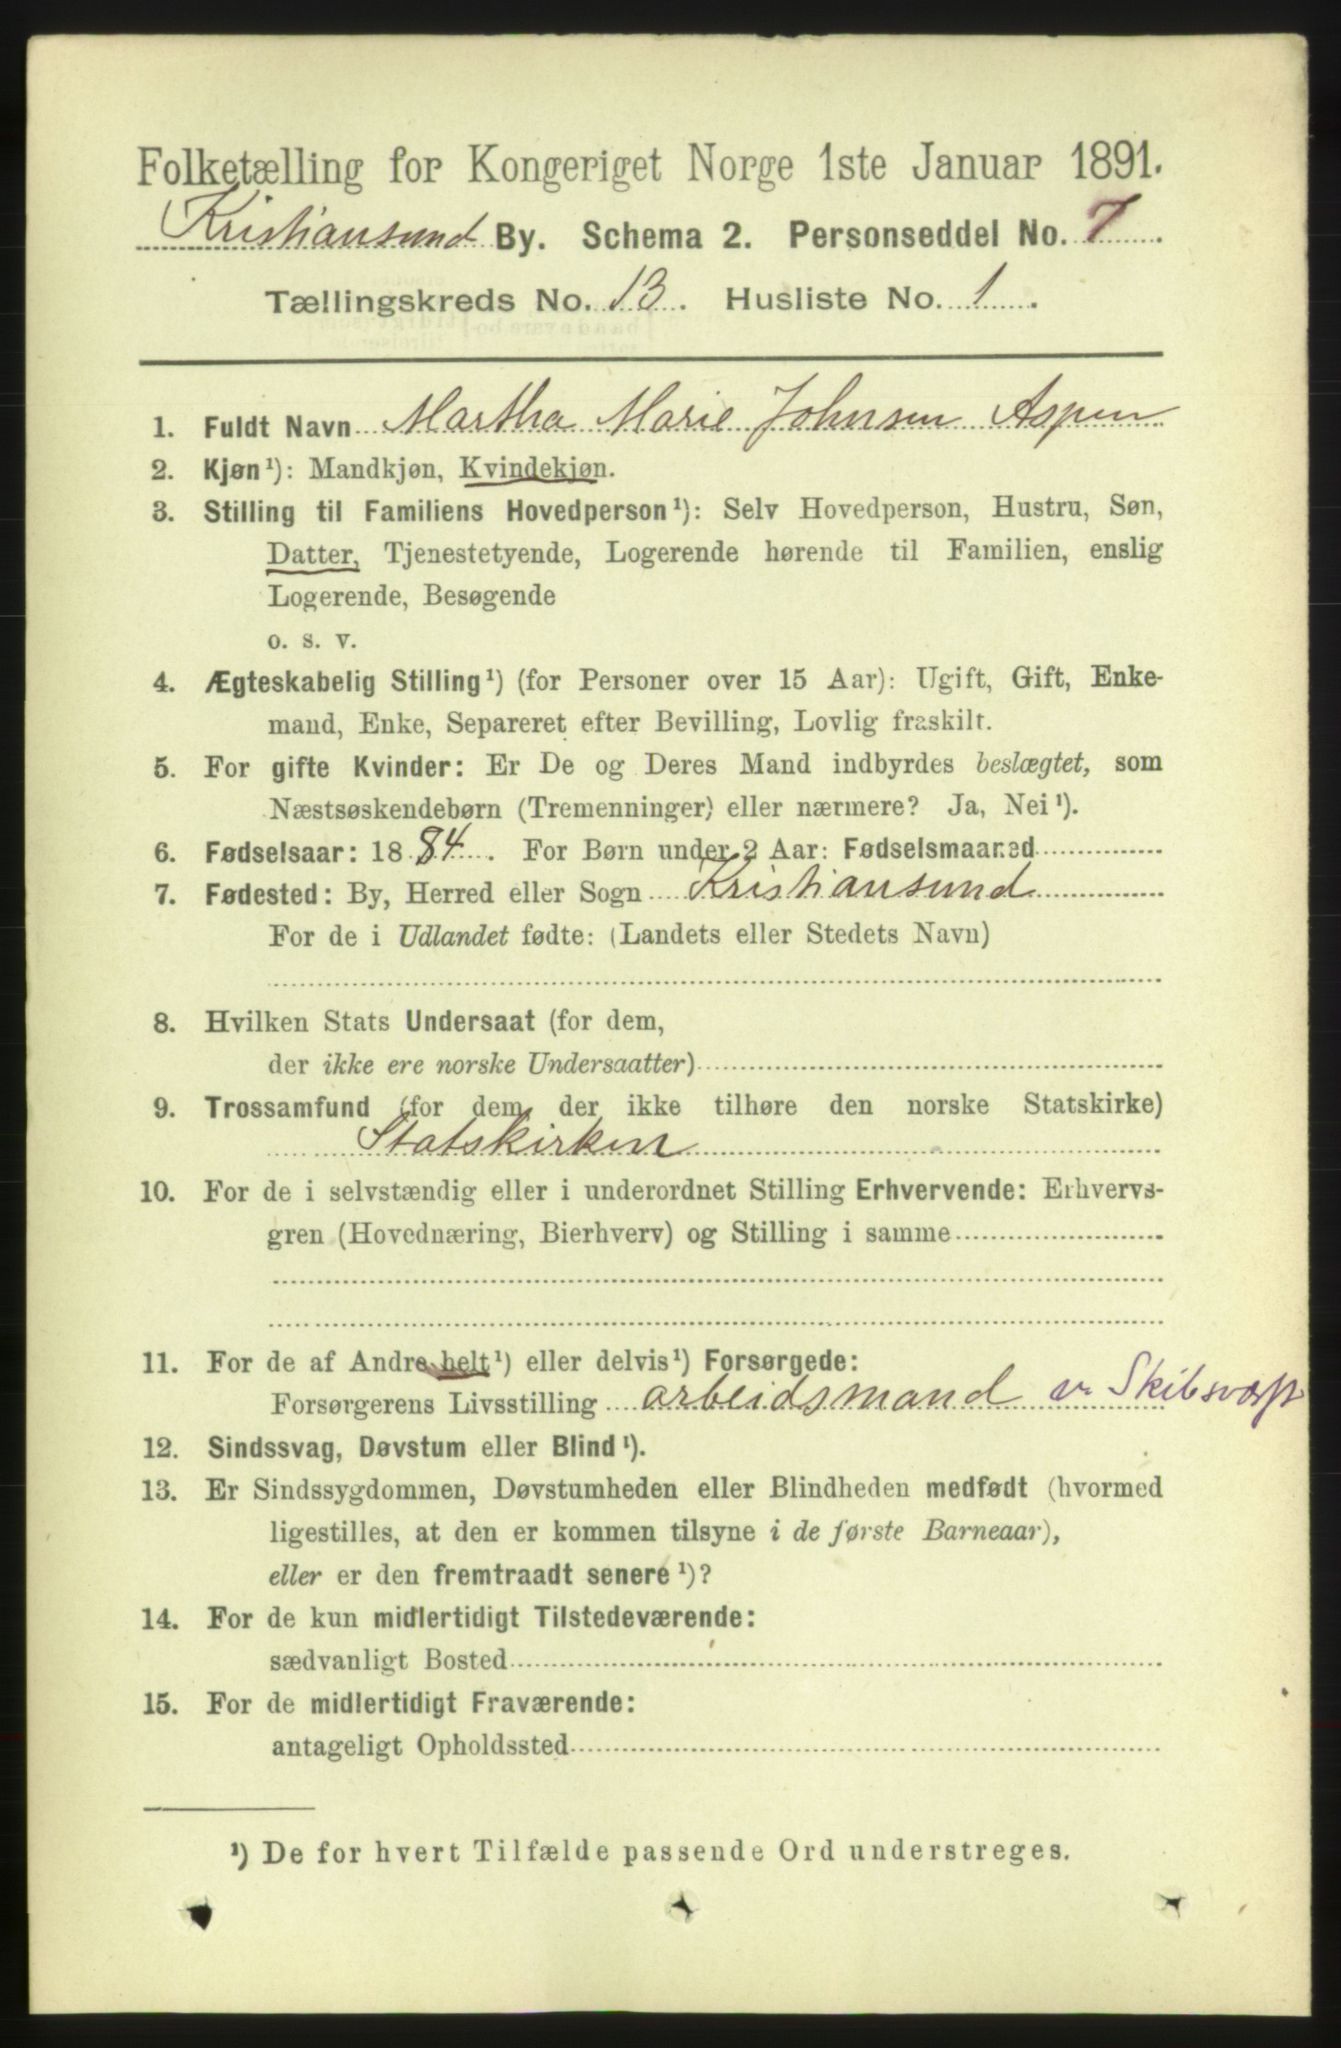 Folketælling for Kongeriget Norge 1ste Januar 1891.
Kristiansund By. Schema 2. Personseddel No. 7
Tællingskreds No. 13. Husliste No. 1
1. Fuldt Navn Martha Marie Johnsen Aspen
2. Kjøn¹): Mandkjøn, Kvindekjøn.
3. Stilling til Familiens Hovedperson¹): Selv Hovedperson, Hustru, Søn,
Datter, Tjenestetyende, Logerende hørende til Familien, enslig
Logerende, Besøgende
o. s. v.
4. Ægteskabelig Stilling¹) (for Personer over 15 Aar): Ugift, Gift, Enke-
mand, Enke, Separeret efter Bevilling, Lovlig fraskilt.
5. For gifte Kvinder: Er De og Deres Mand indbyrdes beslægtet, som
Næstsøskendebørn (Tremenninger) eller nærmere? Ja, Nei¹).
6. Fødselsaar: 1884. For Børn under 2 Aar: Fødselsmaaned
7. Fødested: By, Herred eller Sogn Kristiansund
For de i Udlandet fødte: (Landets eller Stedets Navn)
8. Hvilken Stats Undersaat (for dem,
der ikke ere norske Undersaatter)
9. Trossamfund (for dem, der ikke tilhøre den norske Statskirke)
Statskirken
10. For de i selvstændig eller i underordnet Stilling Erhvervende: Erhvervs-
gren (Hovednæring, Bierhverv) og Stilling i samme
11. For de af Andre helt¹) eller delvis¹) Forsørgede:
Forsørgerens Livsstilling arbeidsmand v. Skibsværft
12. Sindssvag, Døvstum eller Blind¹).
13. Er Sindssygdommen, Døvstumheden eller Blindheden medfødt (hvormed
ligestilles, at den er kommen tilsyne i de første Barneaar),
eller er den fremtraadt senere¹)?
14. For de kun midlertidigt Tilstedeværende:
sædvanligt Bosted
15. For de midlertidigt Fraværende:
antageligt Opholdssted
¹) De for hvert Tilfælde passende Ord understreges.